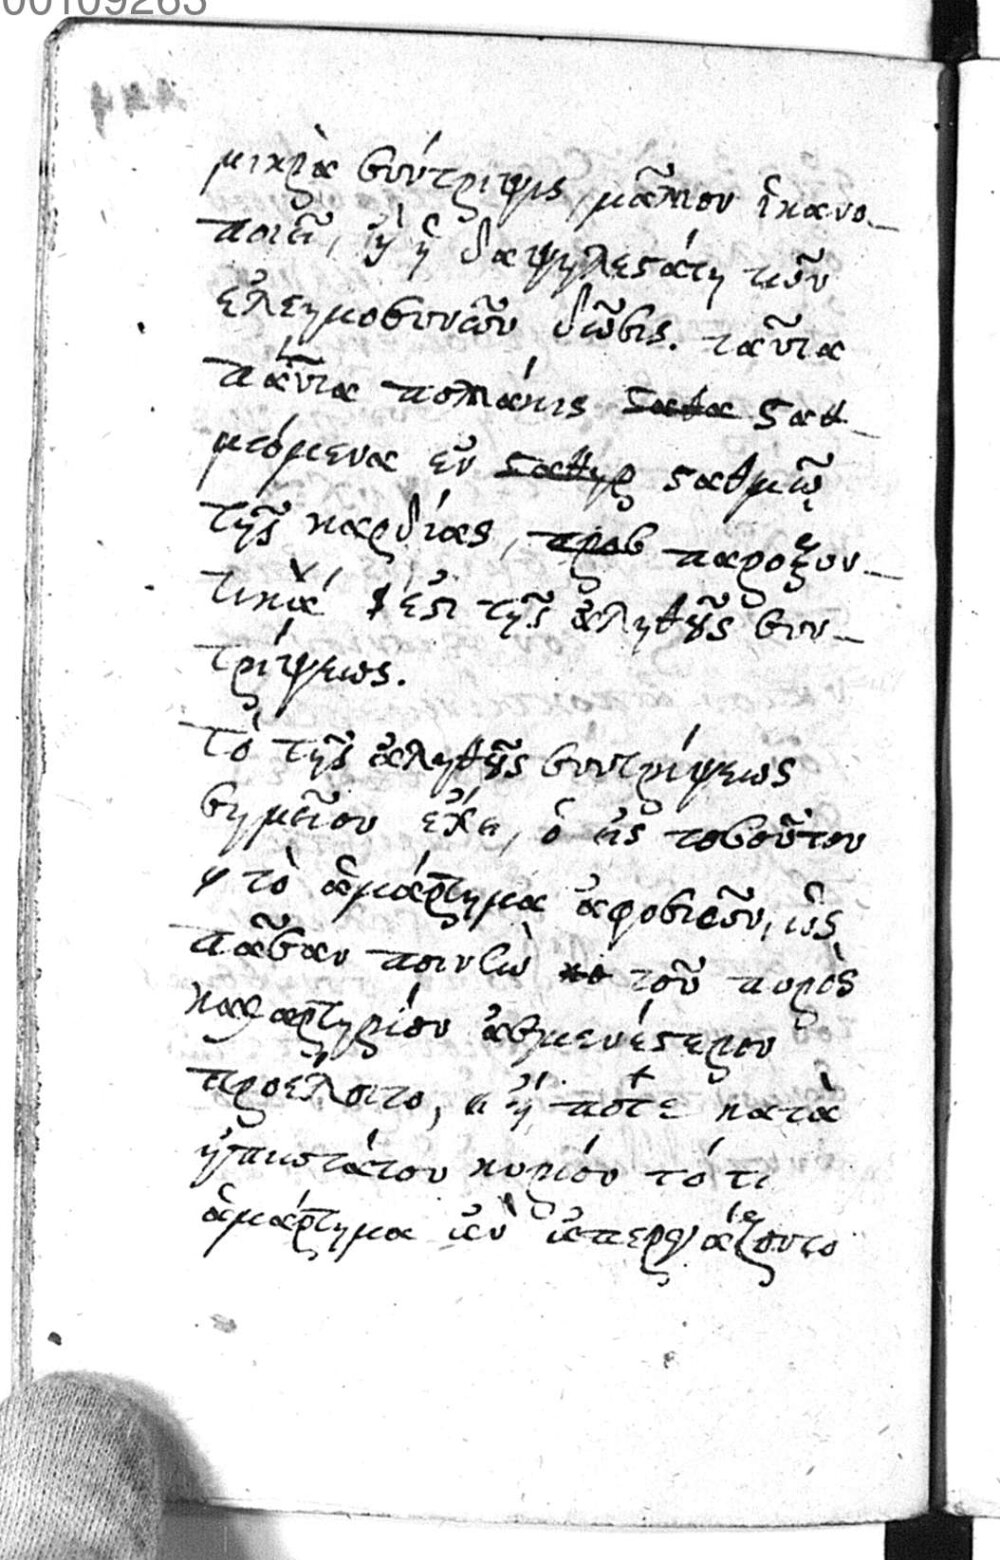 00109263
μικρὰ σύντριψις, μᾶλλον ἱκανο-
ποιεῖ, ἢ ἡ δαψιλεστάτη τῶν
ἐλεημοσυνῶν δῶσις. ταῦτα
πάντα πολλάκις σταθα σταθ-
μιόμενα ἐν σταθηρ σταθμῷ
τῆς καρδίας, προσ παροξυν-
τικά ἐστι τῆς ἀληθοῦς συν-
τρίψεως.
τὸ τῆς ἀληθοῦς συντρίψεως
σημεῖον ἔχει, ὁ εἰς τοσοῦτον
τὸ ἁμάρτημα ἀφοσιῶν, ὡς
πᾶσαν ποινὴν κα τοῦ πυρὸς
καθαρτηρίου ἀσμενέστερον
προέλοιτο, ἢ ποτε κατὰ
ἠπιωτάτου κυρίου τό τι
ἁμάρτημα ἂν ἀπεργάζοντο